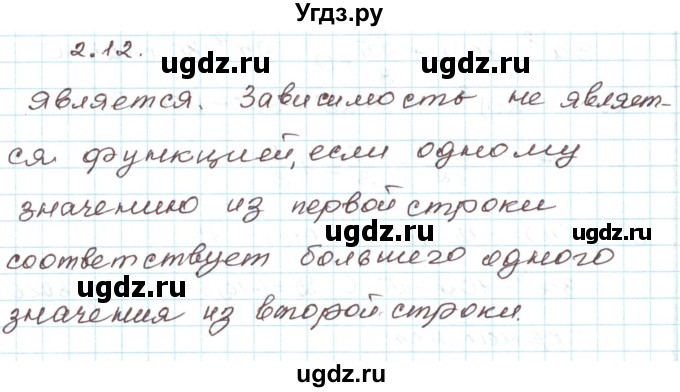 Угдз.ру
2.12.
ugdz.ru ugdz.ru
Является. Зависимость не являет-
ся функцией, если одному
ugdz.ru ugdz.ru
значению из первой строки
соответствует большего одного
ugdz.ru ugdz.ru
значения из второй строки.